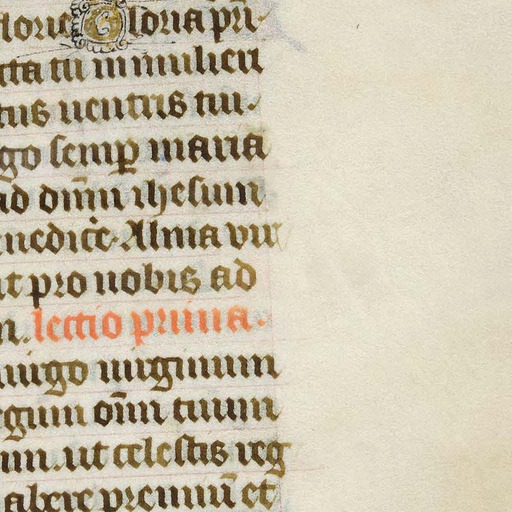 glorie Gloria pri
cta tu in mulieri
tus uentris tui.
go semp maria
ad dnm ihesum
enedicere Alma vir
nt pro nobis ad
m. lectio prima.
uirgo uirginum
egum oim cuium
im. ut celestis reg
abere premiu et